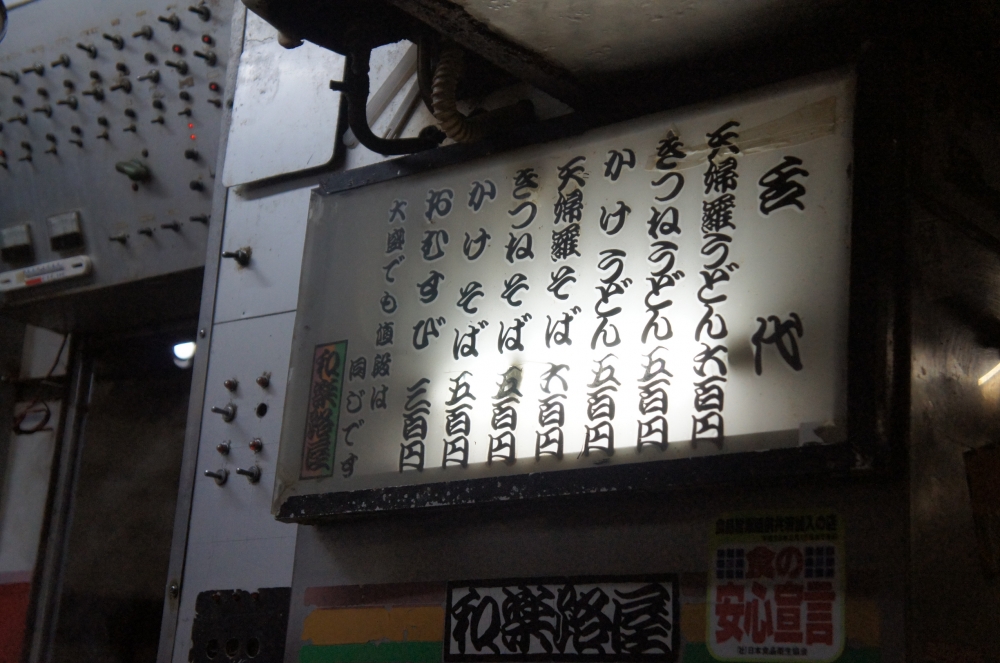 玄代
天婦羅うどん六百円
きつねうどん五百円
かけうどん五百円
天婦羅そば六百円
きつねそば五百円
かけそば五百円
おむすび三百円
大盛でも値段は
同じです
和楽路屋
和楽路屋
食の
安心宣言
(社)日本食品衛生協会